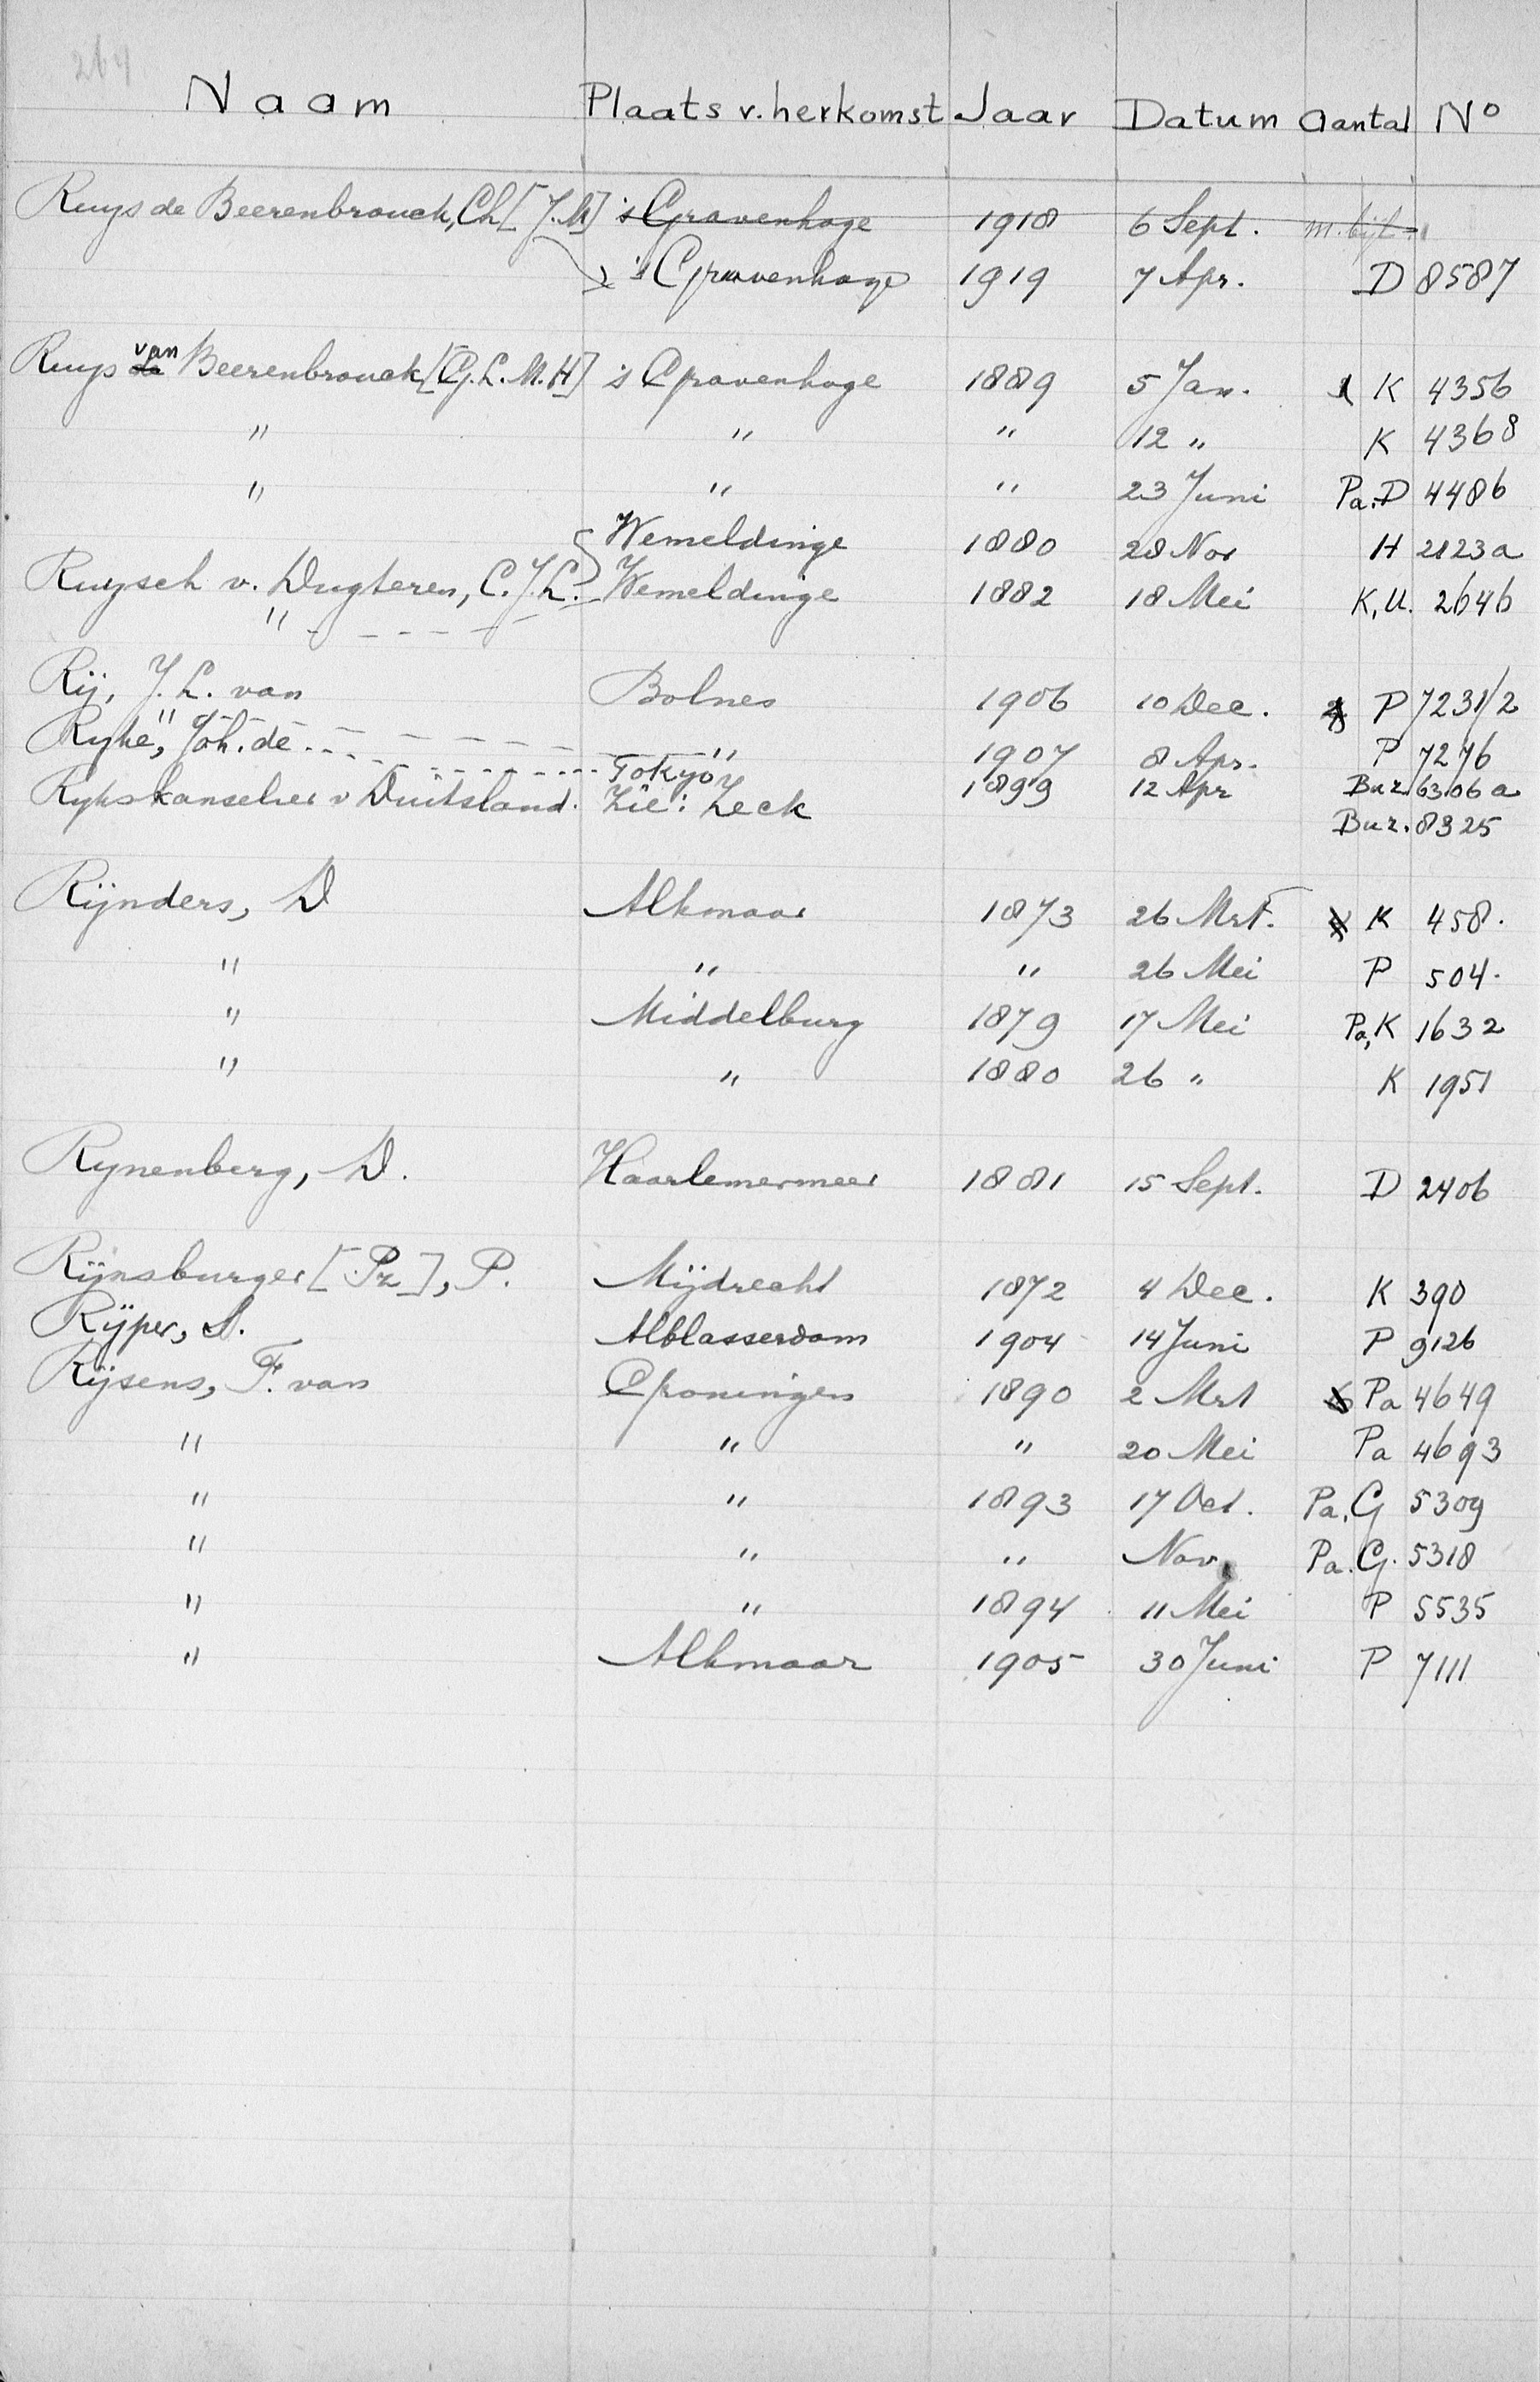 264
Naam Plaats v. herkomst Jaar Datum Aantal No
Ruys de Beerenbrouck, Ch [J.M] 's Gravenhage 1918 6 Sept. m. bijl.
's Gravenhage 1919 7 Apr. D 8587
Ruys van Beerenbrouck [G.L.M.H] 's Gravenhage 1889 5 Jan. 1 K 4356
" " " 12 " K 4368
" " " 23 Juni Pa. D 4486
Wemeldinge 1880 28 Nov H 2123a
Ruysch v. Dugteren, C.J.L. Wemeldinge 1882 18 Mei K, U. 2646
"
Rij, J. L. van Bolnes 1906 10 Dec. P 7231/2
" " 1907 8 Apr. P 7276
Ryke, Joh. de Tokyo 1899 12 Apr Buz. 6306a
Rykskanselier v Duitsland. Zie: Zeck Buz. 8325
Rijnders, D Alkmaar 1873 26 Mrt. K 458.
" " " 26 Mei P 504.
" Middelburg 1879 17 Mei Pa, K 1632
" " 1880 26 " K 1951
Rynenberg, D. Haarlemermeer 1881 15 Sept. D 2406
Rijnsburger [Pz], P. Mijdrecht 1872 4 Dec. K 390
Rijper, S. Alblasserdam 1904 14 Juni P 9126
Rijsens, F. van Groningen 1890 2 Mrt Pa 4649
" " " 20 Mei Pa 4693
" " 1893 17 Oct. Pa, G 5309
" " " Nov. Pa. G. 5318
" " 1894 11 Mei P 5535
" Alkmaar 1905 30 Juni P 7111